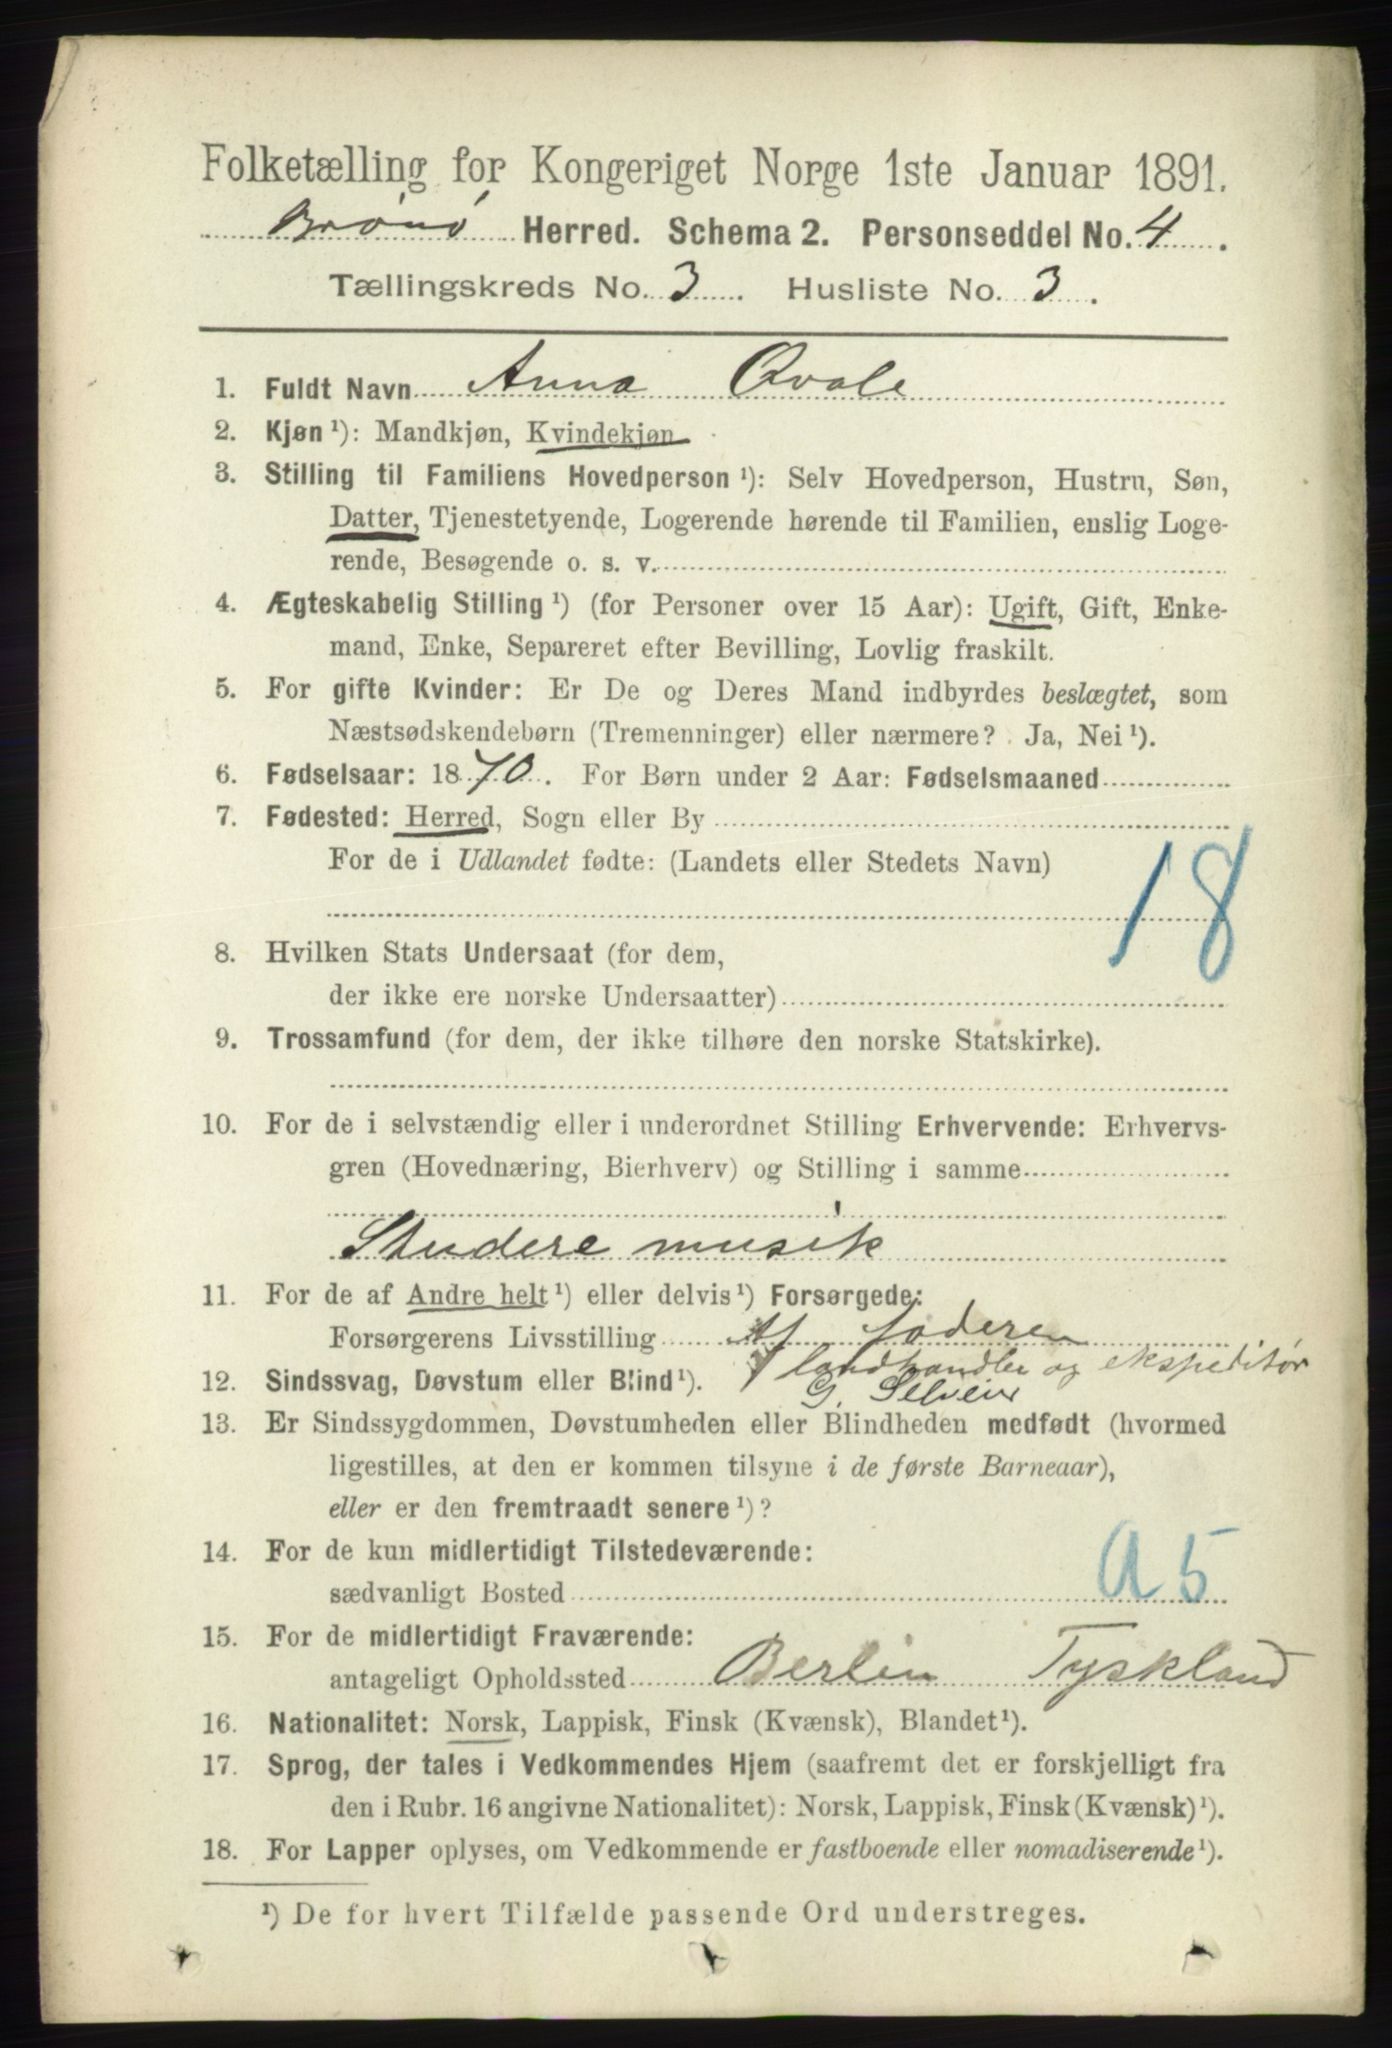 Folketælling for Kongeriget Norge 1ste Januar 1891.
Brønø Herred. Schema 2. Personseddel No. 4.
Tællingskreds No. 3. Husliste No. 3.
1. Fuldt Navn Anna Qvale
2. Kjøn ¹): Mandkjøn, Kvindekjøn
3. Stilling til Familiens Hovedperson ¹): Selv Hovedperson, Hustru, Søn,
Datter, Tjenestetyende, Logerende hørende til Familien, enslig Loge-
rende, Besøgende o. s. v.
4. Ægteskabelig Stilling ¹) (for Personer over 15 Aar): Ugift, Gift, Enke-
mand, Enke, Separeret efter Bevilling, Lovlig fraskilt.
5. For gifte Kvinder: Er De og Deres Mand indbyrdes beslægtet, som
Næstsødskendebørn (Tremenninger) eller nærmere? Ja, Nei ¹).
6. Fødselsaar: 1870. For Børn under 2 Aar: Fødselsmaaned
7. Fødested: Herred, Sogn eller By
For de i Udlandet fødte: (Landets eller Stedets Navn)
18
8. Hvilken Stats Undersaat (for dem,
der ikke ere norske Undersaatter)
9. Trossamfund (for dem, der ikke tilhøre den norske Statskirke).
10. For de i selvstændig eller i underordnet Stilling Erhvervende: Erhvervs-
gren (Hovednæring, Bierhverv) og Stilling i samme
Studere musik
11. For de af Andre helt ¹) eller delvis ¹) Forsørgede:
Forsørgerens Livsstilling Af faderen
landhandler og ekspeditør
12. Sindssvag, Døvstum eller Blind ¹). G.
13. Er Sindssygdommen, Døvstumheden eller Blindheden medfødt (hvormed
ligestilles, at den er kommen tilsyne i de første Barneaar),
eller er den fremtraadt senere ¹)?
14. For de kun midlertidigt Tilstedeværende:
sædvanligt Bosted
A 5
15. For de midlertidigt Fraværende:
antageligt Opholdssted Berlin Tyskland
16. Nationalitet: Norsk, Lappisk, Finsk (Kvænsk), Blandet ¹).
17. Sprog, der tales i Vedkommendes Hjem (saafremt det er forskjelligt fra
den i Rubr. 16 angivne Nationalitet): Norsk, Lappisk, Finsk (Kvænsk) ¹).
18. For Lapper oplyses, om Vedkommende er fastboende eller nomadiserende ¹).
¹) De for hvert Tilfælde passende Ord understreges.